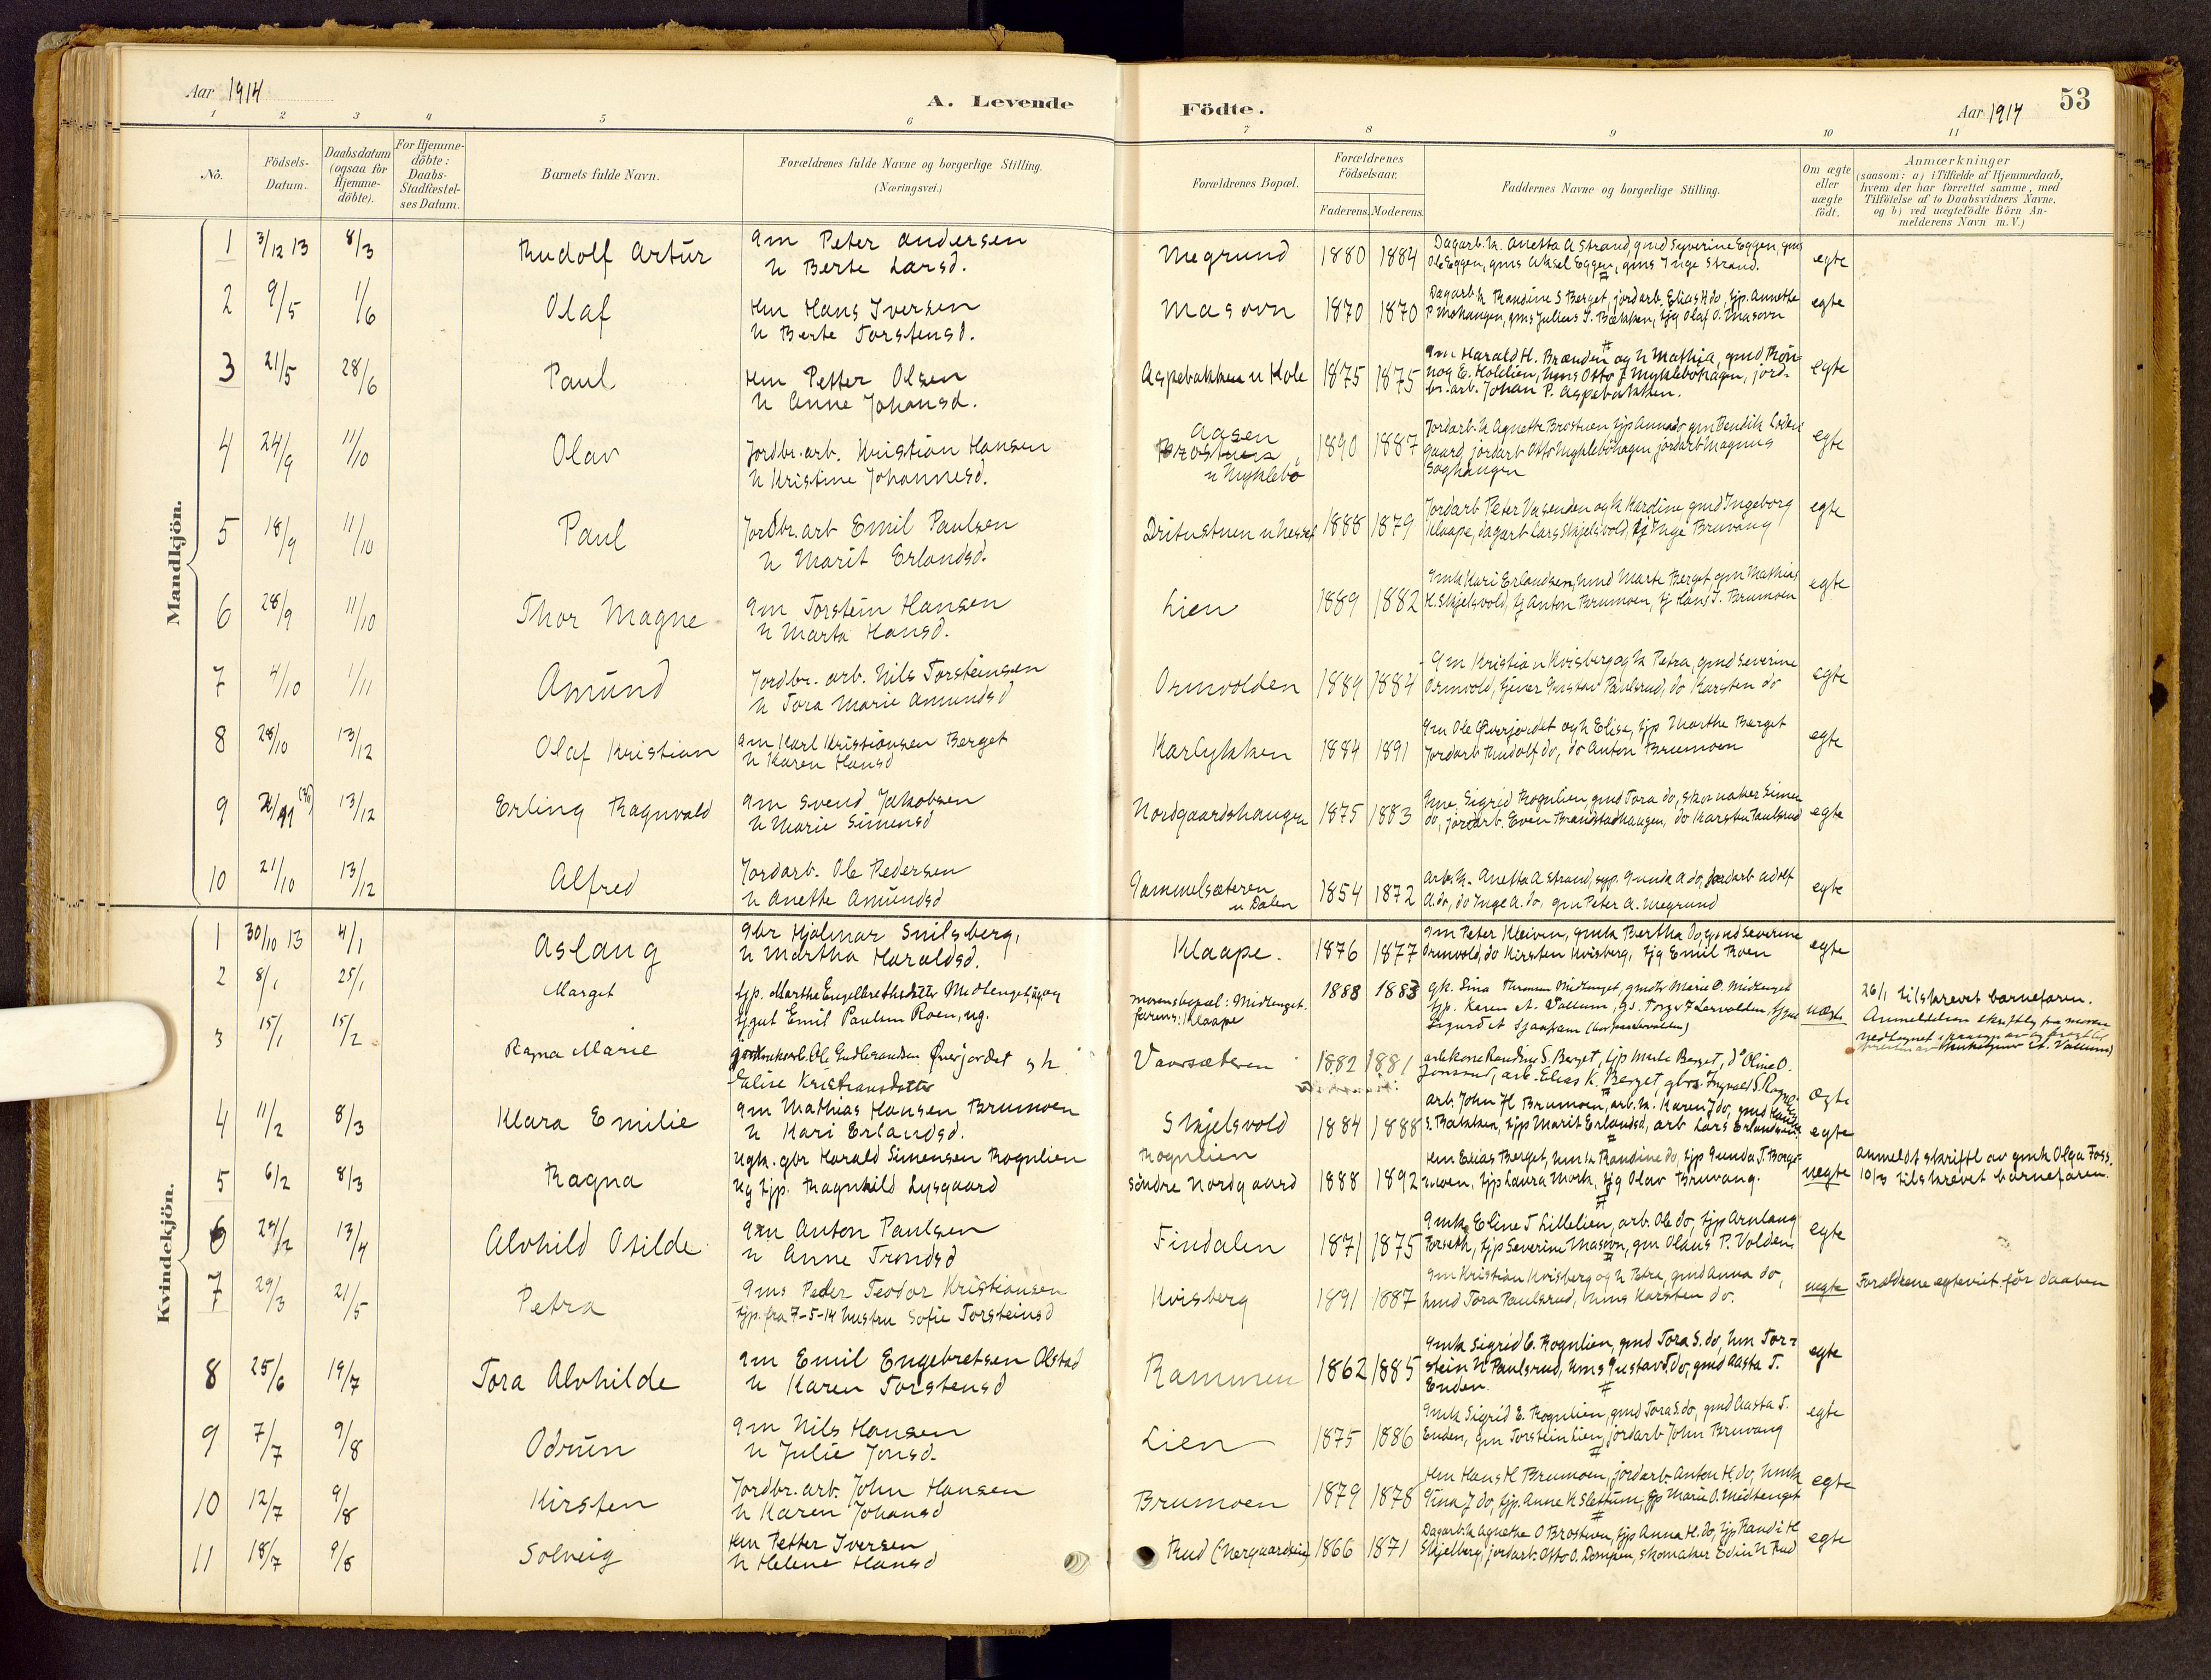 Aar 1914
A. Levende
Födte.
Aar 1914
53
1 2 3 4 5 6 7 8 9 10 11
No.
Födsels-Datum.
Daabsdatum (ogsaa for Hjemme-döbte).
For Hjemme-döbte: Daabs-Stadfæstel-ses Datum.
Barnets fulde Navn.
Forældrenes fulde Navne og borgerlige Stilling.
(Næringsvei.)
Forældrenes Bopæl.
Forældrenes Födselsaar.
Faderens. Moderens.
Faddernes Navne og borgerlige Stilling.
Om ægte eller uægte födt.
Anmærkninger
(saasom: a) i Tilfælde af Hjemmedaab,
hvem der har forrettet samme, med
Tilföielse af to Daabsvidners Navne,
og b) ved uægtefödte Börn An-
melderens Navn m. V.)
Mandkjön.
1 3/12 13 8/3 Rudolf Artur gm Peter Andersen Megrund 1880 1884 Dagarb. k. Anetta A Strand gmd Syverine Eggen, gms
h Berte Larsd. Ole Eggen, gms Aksel Eggen, gms Inge Strand. egte
2 9/5 1/6 Olaf Hm Hans Iversen Masovn 1870 1870 Dagarb k Randine S Berget, jordarb. Elias K do, tjp. Annette egte
h Berte Torstensd. P Mohaugen, gms Julius J. Bækken, tjg Olaf O. Masovn
3 21/5 28/6 Paul Hm Petter Olsen Aspebakken u Hole 1875 1875 gm Harald H. Brænden og h Mathia, gmd Rön- egte
h Anne Johansd. nog E. Holelien, hms Otto J Mykleböhagen, jord-
br. arb. Johan P. Aspebakken.
4 24/9 11/10 Olav Jordbr. arb. Kristian Hansen Aasen u Myklebö 1890 1887 Jordarb. k Agnethe Brostuen tjp Anna do gm Bendik Loden- egte
h Kristine Johannesd. gaard jordarb Otto Mykleböhagen, jordarb Magnus
Soghaugen
5 18/9 11/10 Paul Jordbr. arb Emil Paulsen 1888 1879 Jordarb Peter Vasenden og k Kardine gmd Ingeborg egte
h Marit Erlandsd. Klaape, dagarb Lars Skjelsvold, tj Inge Bruvang
6 28/9 11/10 Thor Magne gm Torstein Hansen Lien 1889 1882 gmk Kari Erlandsen, hmd Marte Berget, gm Mathias egte
h Marta Hansd. H. Skjelsvold, tj Anton Brumoen, tj Hans J. Brumoen
7 4/10 1/11 Amund Jordbr. arb. Nils Torsteinsen Ormvolden 1889 1884 gm Kristian Kvisberg og h Petra, gmd Severine egte
h Tora Marie Amundsd Ormvold, tjener Gustav Paulsrud, do Karsten do
8 28/10 13/12 Olaf Kristian gm Karl Kristiansen Berget Karlykken 1884 1891 gm Ole Överjordet og h Elise, tjp Marthe Berget egte
h Karen Hansd Jordarb Rudolf do, do Anton Brumoen
9 13/12 Erling Ragnvald gm Svend Jakobsen Nordgaardshaugen 1875 1883 gme. Sigrid Rognlien, gmd Tora do, skomaker Simen egte
h Marie Simensd do, jordarb. Even Brandstadhaugen, do Karsten Paulsrud
10 21/10 13/12 Alfred Jordarb. Ole Pedersen Gammelsæteren u Dalen 1854 1872 arb. k. Anetta A Strand, syp. Gunda A do, jordarb Adolf egte
h Anette Amundsd A. do, do Inge A. do, gm Peter A. Megrund
Kvindekjön.
1 30/10 13 4/1 Aslaug gbr Hjalmar Snilsberg, Klaape. 1876 1877 gm Peter Kleiven, gmk Bertha do, gmd Severine egte
h Martha Haraldsd. Ormvold, do Kirsten Kvisberg, tjg Emil Roen
2 8/1 25/1 Marget tjp. Marthe Engelbrethsdatter Midtenget, ug, og morens bopæl: Midtenget. 1888 1883 gk. Sina Thronsen Midtenget, gmdtr Marie O. Midtenget uægte 26/1 tilskrevet barnefaren.
tjgut Emil Paulsen Roen, ug. farens: Klaape tjp. Karen A. Vallum, Anmeldelsen skriftlig fra moren
3 15/1 15/2 Ragna Marie Ole Gudbrandsen Överjordet og h. Vaarsæteren 1882 1881 arbkone Randine S. Berget, tjp Marte Berget, do Oline O.
Elise Kristiansdatter Jonsrud, arb. Elias K. Berget, ægte
4 11/2 8/3 Klara Emilie gm Mathias Hansen Brumoen Skjelsvold 1884 1888 arb. John H Brumoen, arb. k. Karen J do,
h Kari Erlandsd. S. Bakken, tjp Marit Erlandsd, arb Lars Erlandsen. egte
5 6/2 8/3 Ragna Ugk. gbr Harald Simensen Rognlien Rognlien 1888 1892 Hm Elias Berget, hmk Randine do, tjp Gunda T. Borge- uegte anmeldt skriftl av gmk Olga Foss.
Ug tjp. Ragnhild Lysgaard söndre Nordgaard moen, tjp Laura Mork, tjg Olav Bruvang. 10/3 tilskrevet barnefaren.
6 24/2 13/4 Alvhild Otilde gm Anton Paulsen Findalen 1871 1875 gmk Eline T Lillelien, arb. Ole do, tjp Arnlaug egte
h Anne Trondsd Torseth, tjp Severine Masovn, gm Olaus P. Volden
7 29/3 21/5 Petra gms Peder Teodor Kristiansen Kvisberg 1891 1887 gm Kristian Kvisberg og h Petra, gmd Anna do, uegte Forældrene egteviet för daaben
tjp. fra 7-5-14 hustru Sofie Torsteinsd hmd Tora Paulsrud, hms Karsten do.
8 25/6 19/7 Tora Alvhilde gm Emil Engebretsen Olstad Rammen 1862 1885 gmk Sigrid E. Rognlien, gmd Tora S. do, hm Tor- egte
h Karen Torstensd stein N Paulsrud, hms Gustav T do, gmd Aasta T.
Enden.
9 7/7 9/8 Odrun gm Nils Hansen Lien 1875 1886 gmk Sigrid E. Rognlien, gmd Tora S. do, gmd Aasta T. egte
h Julie Jonsd. Enden, gm Torstein Lien, jordarb John Bruvang
10 12/7 9/8 Kirsten Jordbr. arb. John Hansen Brumoen 1879 1878 Hm Hans H Brumoen, jordarb. Anton H. do, hmk egte
h Karen Johansd Tina J do, tjp. Anne K Slettum, tjp Marie O. Midtenget
11 18/7 9/8 Solveig Hm Petter Iversen Rud 1866 1871 Dagarb. k Agnethe O Brostuen, tjp Anna H. do, tjp Randi H egte
h Helene Hansd Skjelberg, jordarb. Otto O. Dompen, skomaker Edin N Rud